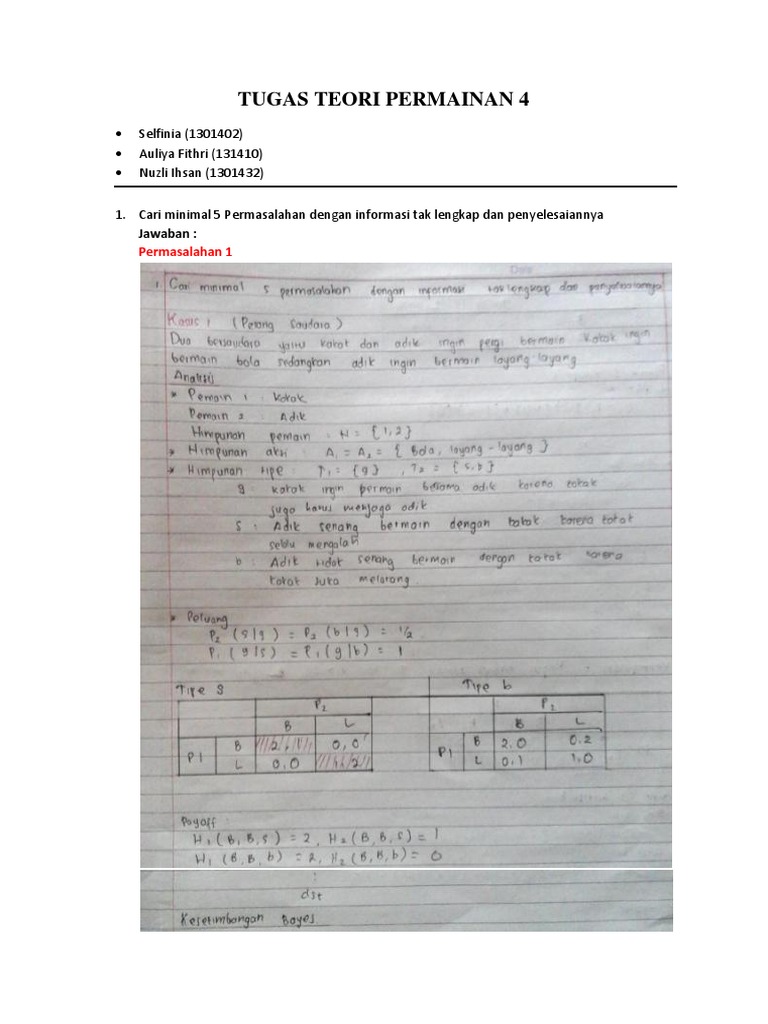 TUGAS TEORI PERMAINAN 4
• Selfinia (1301402)
• Auliya Fithri (131410)
• Nuzli Ihsan (1301432)
1. Cari minimal 5 Permasalahan dengan informasi tak lengkap dan penyelesaiannya
Jawaban :
Permasalahan 1
1. Cari minimal 5 permasalahan dengan informasi tak lengkap dan penyelesaiannya
Kasus 1 (Perang Saudara)
Dua bersaudara yaitu kakak dan adik ingin pergi bermain kakak ingin
bermain bola sedangkan adik ingin bermain layang-layang
Analisis
* Pemain 1 : Kakak
Pemain 2 : Adik
Himpunan pemain : N = {1,2}
* Himpunan aksi : A₁ = A₂ = { Bola, layang-layang }
* Himpunan tipe : T₁ = {g} , T₂ = {s,b}
g : kakak ingin bermain bersama adik karena kakak
juga harus menjaga adik
s : Adik senang bermain dengan kakak karena kakak
selalu mengalah
b : Adik tidak senang bermain dengan kakak karena
kakak suka melarang
* Peluang
P₂ (s|g) = P₂ (b|g) = 1/2
P₁ (g|s) = P₁ (g|b) = 1
Tipe s Tipe b
P₂ P₂
B L B L
P1 B 0,0 P1 B 2.0 0.2
L 0,0 L 0.1 1.0
Payoff :
H₁ (B,B,s) = 2, H₂ (B,B,s) = 1
H₁ (B,B,b) = 2, H₂ (B,B,b) = 0
:
dst
Kesetimbangan Bayes